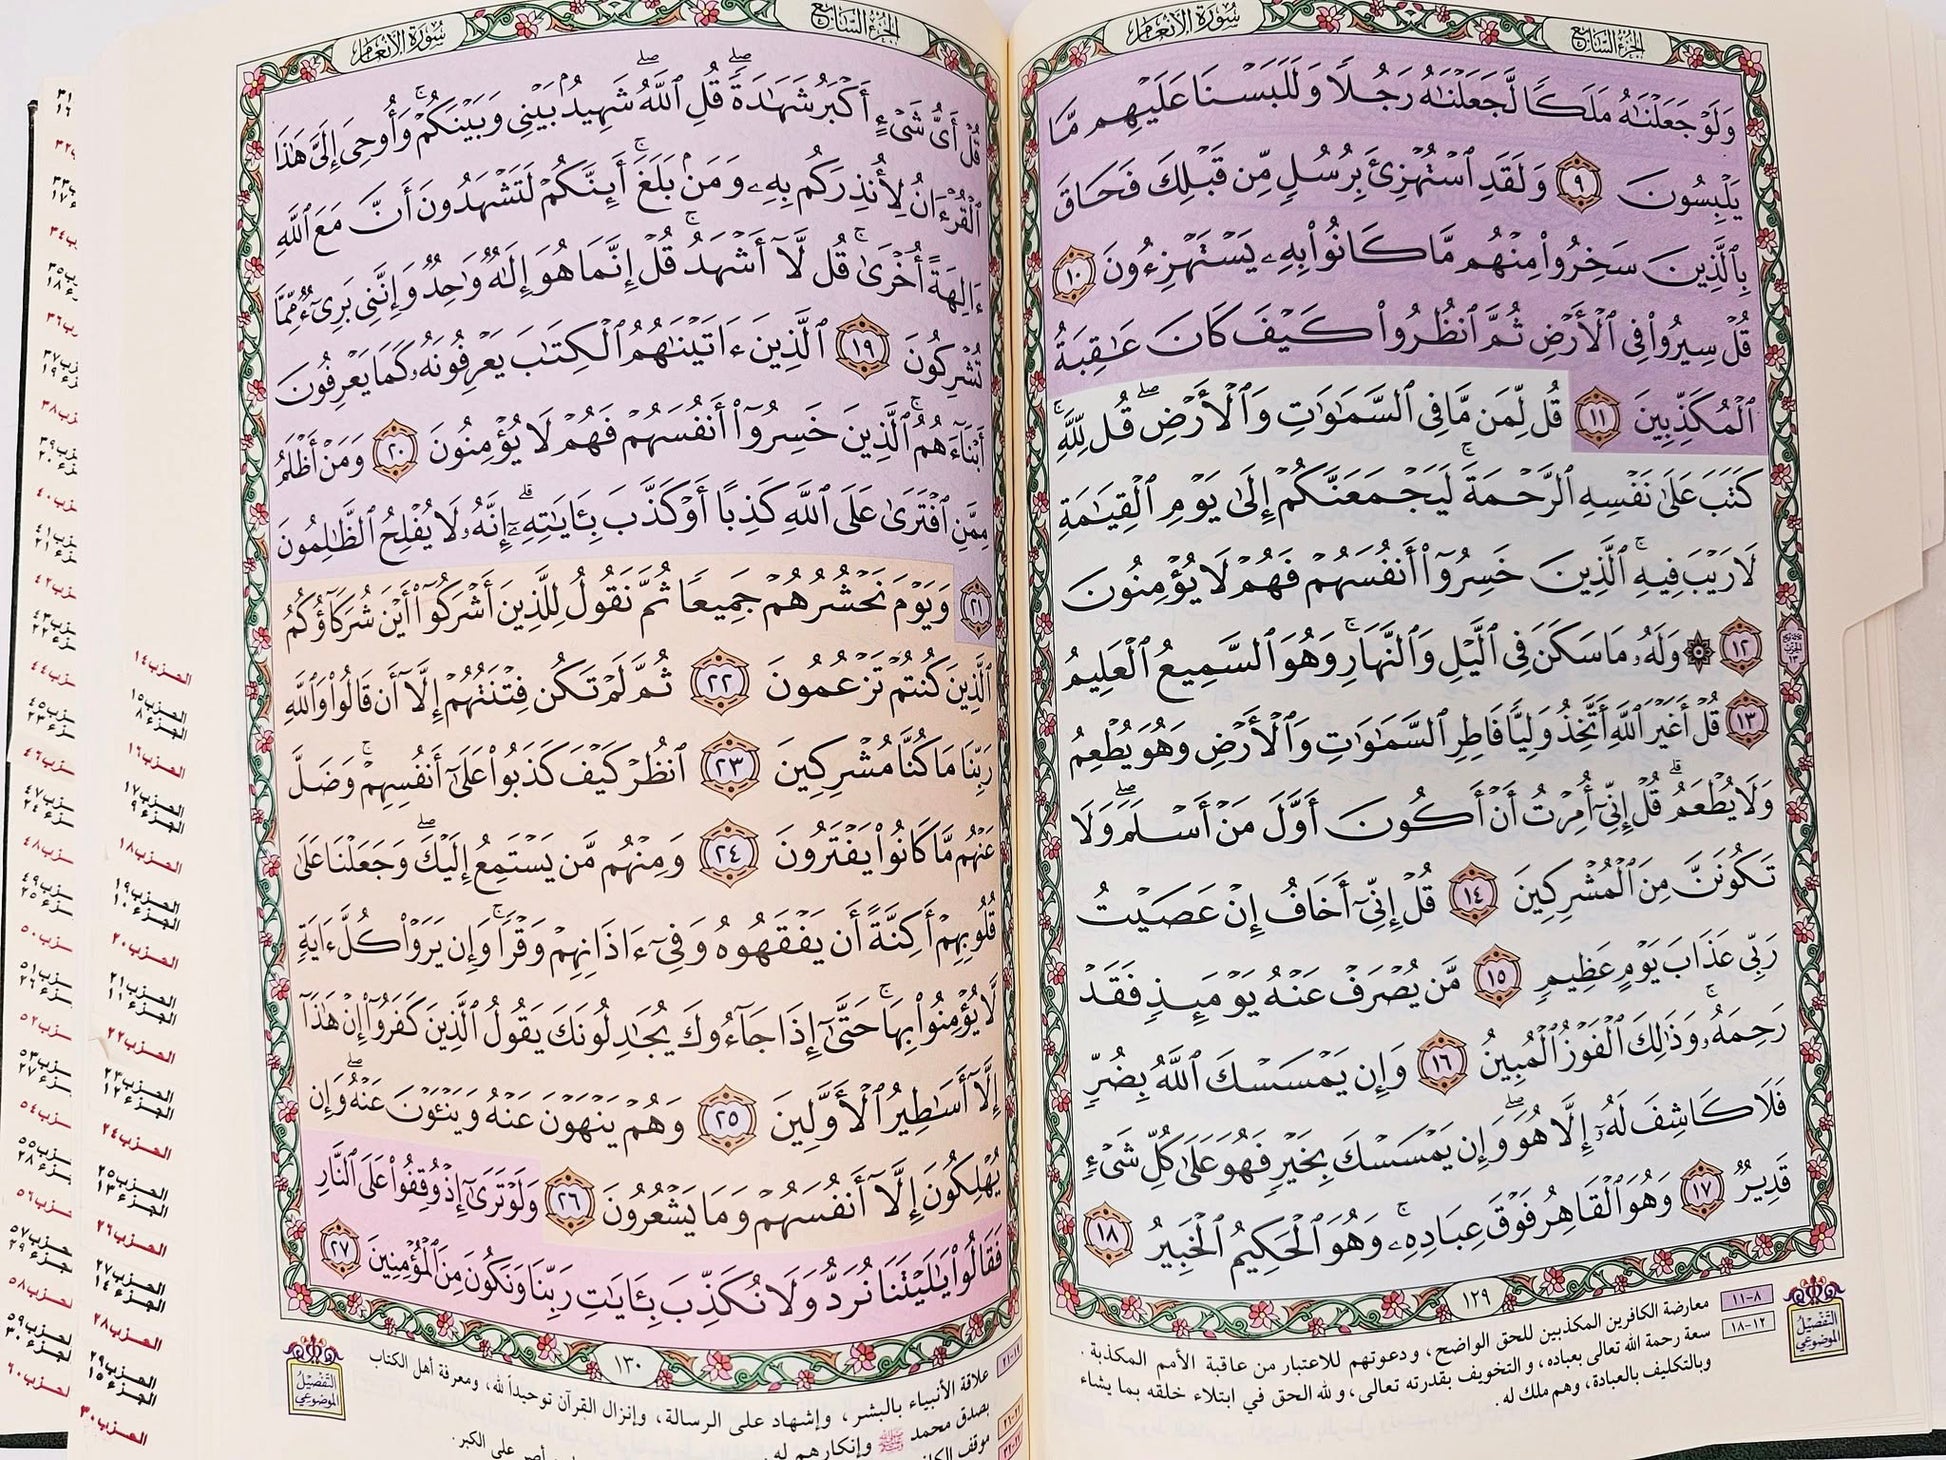 الجزء السابع
سورة الأنعام
وَلَوْ جَعَلْنَٰهُ مَلَكًا لَّجَعَلْنَٰهُ رَجُلًا وَلَلَبَسْنَا عَلَيْهِم مَّا
يَلْبِسُونَ ٩ وَلَقَدِ ٱسْتُهْزِئَ بِرُسُلٍ مِّن قَبْلِكَ فَحَاقَ
بِٱلَّذِينَ سَخِرُوا۟ مِنْهُم مَّا كَانُوا۟ بِهِۦ يَسْتَهْزِءُونَ ١٠
قُلْ سِيرُوا۟ فِى ٱلْأَرْضِ ثُمَّ ٱنظُرُوا۟ كَيْفَ كَانَ عَٰقِبَةُ
ٱلْمُكَذِّبِينَ ١١ قُل لِّمَن مَّا فِى ٱلسَّمَٰوَٰتِ وَٱلْأَرْضِ ۖ قُل لِّلَّهِ ۚ
كَتَبَ عَلَىٰ نَفْسِهِ ٱلرَّحْمَةَ ۚ لَيَجْمَعَنَّكُمْ إِلَىٰ يَوْمِ ٱلْقِيَٰمَةِ
لَا رَيْبَ فِيهِ ۚ ٱلَّذِينَ خَسِرُوٓا۟ أَنفُسَهُمْ فَهُمْ لَا يُؤْمِنُونَ
١٢ ۞ وَلَهُۥ مَا سَكَنَ فِى ٱلَّيْلِ وَٱلنَّهَارِ ۚ وَهُوَ ٱلسَّمِيعُ ٱلْعَلِيمُ
١٣ قُلْ أَغَيْرَ ٱللَّهِ أَتَّخِذُ وَلِيًّا فَاطِرِ ٱلسَّمَٰوَٰتِ وَٱلْأَرْضِ وَهُوَ يُطْعِمُ
وَلَا يُطْعَمُ ۗ قُلْ إِنِّىٓ أُمِرْتُ أَنْ أَكُونَ أَوَّلَ مَنْ أَسْلَمَ ۖ وَلَا
تَكُونَنَّ مِنَ ٱلْمُشْرِكِينَ ١٤ قُلْ إِنِّىٓ أَخَافُ إِنْ عَصَيْتُ
رَبِّى عَذَابَ يَوْمٍ عَظِيمٍ ١٥ مَّن يُصْرَفْ عَنْهُ يَوْمَئِذٍ فَقَدْ
رَحِمَهُۥ ۚ وَذَٰلِكَ ٱلْفَوْزُ ٱلْمُبِينُ ١٦ وَإِن يَمْسَسْكَ ٱللَّهُ بِضُرٍّ
فَلَا كَاشِفَ لَهُۥٓ إِلَّا هُوَ ۖ وَإِن يَمْسَسْكَ بِخَيْرٍ فَهُوَ عَلَىٰ كُلِّ شَىْءٍ
قَدِيرٌ ١٧ وَهُوَ ٱلْقَاهِرُ فَوْقَ عِبَادِهِۦ ۚ وَهُوَ ٱلْحَكِيمُ ٱلْخَبِيرُ ١٨
١٢٩
التفصيل الموضوعي
٨-١١ معارضة الكافرين المكذبين للحق الواضح، ودعوتهم للاعتبار من عاقبة الأمم المكذبة.
١٢-١٨ سعة رحمة الله تعالى بعباده، والتخويف بقدرته تعالى، ولله الحق في ابتلاء خلقه بما يشاء
وبالتكليف بالعبادة، وهم ملك له.
الجزء السابع
سورة الأنعام
قُلْ أَىُّ شَىْءٍ أَكْبَرُ شَهَٰدَةً ۖ قُلِ ٱللَّهُ ۖ شَهِيدٌۢ بَيْنِى وَبَيْنَكُمْ ۚ وَأُوحِىَ إِلَىَّ هَٰذَا
ٱلْقُرْءَانُ لِأُنذِرَكُم بِهِۦ وَمَنۢ بَلَغَ ۚ أَئِنَّكُمْ لَتَشْهَدُونَ أَنَّ مَعَ ٱللَّهِ
ءَالِهَةً أُخْرَىٰ ۚ قُل لَّآ أَشْهَدُ ۚ قُلْ إِنَّمَا هُوَ إِلَٰهٌ وَٰحِدٌ وَإِنَّنِى بَرِىٓءٌ مِّمَّا
تُشْرِكُونَ ١٩ ٱلَّذِينَ ءَاتَيْنَٰهُمُ ٱلْكِتَٰبَ يَعْرِفُونَهُۥ كَمَا يَعْرِفُونَ
أَبْنَآءَهُمُ ۘ ٱلَّذِينَ خَسِرُوٓا۟ أَنفُسَهُمْ فَهُمْ لَا يُؤْمِنُونَ ٢٠ وَمَنْ أَظْلَمُ
مِمَّنِ ٱفْتَرَىٰ عَلَى ٱللَّهِ كَذِبًا أَوْ كَذَّبَ بِـَٔايَٰتِهِۦٓ ۗ إِنَّهُۥ لَا يُفْلِحُ ٱلظَّٰلِمُونَ
٢١ وَيَوْمَ نَحْشُرُهُمْ جَمِيعًا ثُمَّ نَقُولُ لِلَّذِينَ أَشْرَكُوٓا۟ أَيْنَ شُرَكَآؤُكُمُ
ٱلَّذِينَ كُنتُمْ تَزْعُمُونَ ٢٢ ثُمَّ لَمْ تَكُن فِتْنَتُهُمْ إِلَّآ أَن قَالُوا۟ وَٱللَّهِ
رَبِّنَا مَا كُنَّا مُشْرِكِينَ ٢٣ ٱنظُرْ كَيْفَ كَذَبُوا۟ عَلَىٰٓ أَنفُسِهِمْ ۚ وَضَلَّ
عَنْهُم مَّا كَانُوا۟ يَفْتَرُونَ ٢٤ وَمِنْهُم مَّن يَسْتَمِعُ إِلَيْكَ ۖ وَجَعَلْنَا عَلَىٰ
قُلُوبِهِمْ أَكِنَّةً أَن يَفْقَهُوهُ وَفِىٓ ءَاذَانِهِمْ وَقْرًا ۚ وَإِن يَرَوْا۟ كُلَّ ءَايَةٍ
لَّا يُؤْمِنُوا۟ بِهَا ۚ حَتَّىٰٓ إِذَا جَآءُوكَ يُجَٰدِلُونَكَ يَقُولُ ٱلَّذِينَ كَفَرُوٓا۟ إِنْ هَٰذَآ
إِلَّآ أَسَٰطِيرُ ٱلْأَوَّلِينَ ٢٥ وَهُمْ يَنْهَوْنَ عَنْهُ وَيَنْـَٔوْنَ عَنْهُ ۖ وَإِن
يُهْلِكُونَ إِلَّآ أَنفُسَهُمْ وَمَا يَشْعُرُونَ ٢٦ وَلَوْ تَرَىٰٓ إِذْ وُقِفُوا۟ عَلَى ٱلنَّارِ
فَقَالُوا۟ يَٰلَيْتَنَا نُرَدُّ وَلَا نُكَذِّبَ بِـَٔايَٰتِ رَبِّنَا وَنَكُونَ مِنَ ٱلْمُؤْمِنِينَ ٢٧
١٣٠
التفصيل الموضوعي
علاقة الأنبياء بالبشر، وإشهاد على الرسالة، وإنزال القرآن توحيداً لله، ومعرفة أهل الكتاب
بصدق محمد ﷺ وإنكارهم له
موقف
أصر على الكبر.
الحزب ١٤
الحزب ١٥
الجزء ٨
الحزب ١٦
الحزب ١٧
الجزء ٩
الحزب ١٨
الحزب ١٩
الجزء ١٠
الحزب ٢٠
الحزب ٢١
الجزء ١١
الحزب ٢٢
الحزب ٢٣
الجزء ١٢
الحزب ٢٤
الحزب ٢٥
الجزء ١٣
الحزب ٢٦
الحزب ٢٧
الجزء ١٤
الحزب ٢٨
الحزب ٢٩
الجزء ١٥
الحزب ٣٠